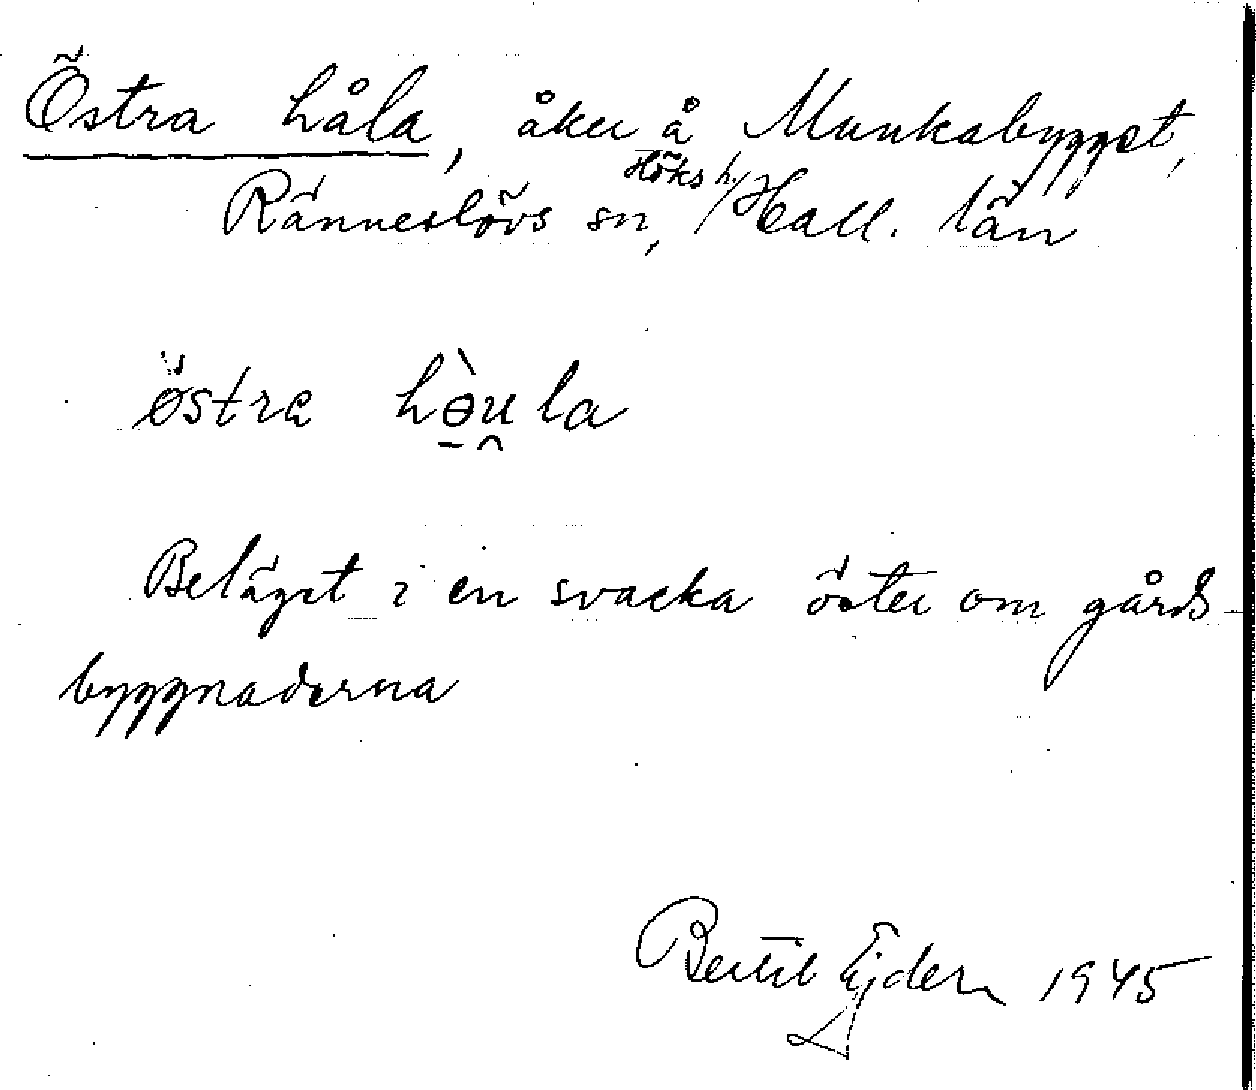 Östra håla, åker å Munkabygget,
Ränneslövs sn, Höks h. Hall. län
östra hɵ̀u̯la
Beläget i en svacka öster om gårds-
byggnaderna
Bertil Ejder 1945